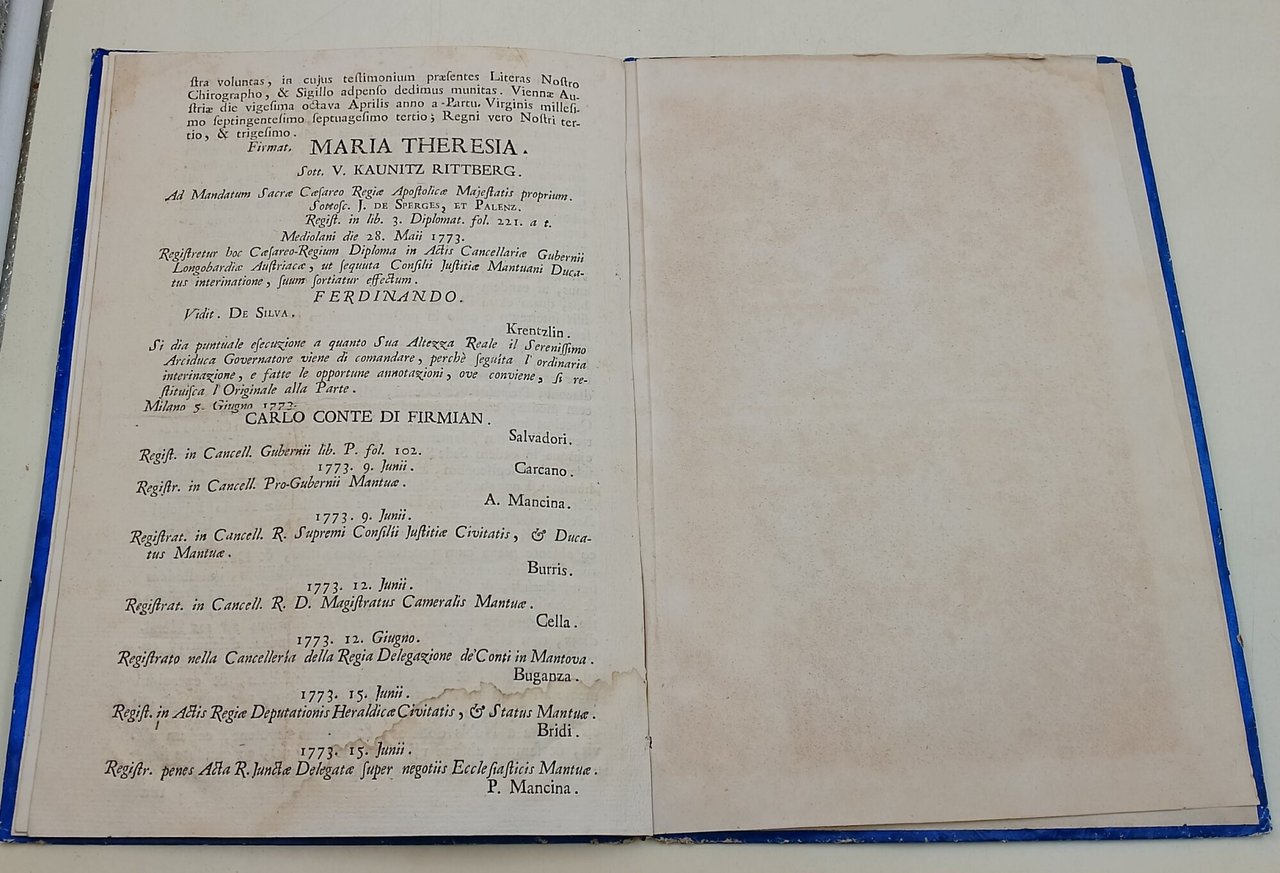 ſtra voluntas, in cujus teſtimonium præſentes Literas Noſtro
Chirographo, & Sigillo adpenſo dedimus munitas. Viennæ Au-
ſtriæ die vigeſima octava Aprilis anno a Partu Virginis milleſi-
mo ſeptingenteſimo ſeptuageſimo tertio; Regni vero Noſtri ter-
tio, & trigeſimo.
Firmat. MARIA THERESIA.
Sott. V. KAUNITZ RITTBERG.
Ad Mandatum Sacræ Cæſareo Regiæ Apoſtolicæ Majeſtatis proprium.
Sottoſc. J. DE SPERGES, ET PALENZ.
Regiſt. in lib. 3. Diplomat. fol. 221. a t.
Mediolani die 28. Maii 1773.
Regiſtretur hoc Cæſareo-Regium Diploma in Actis Cancellariæ Gubernii
Longobardiæ Auſtriacæ, ut ſequuta Conſilii Juſtitiæ Mantuani Duca-
tus interinatione, ſuum ſortiatur effectum.
FERDINANDO.
Vidit. DE SILVA.
Krentzlin.
Si dia puntuale eſecuzione a quanto Sua Altezza Reale il Sereniſſimo
Arciduca Governatore viene di comandare, perchè ſeguita l'ordinaria
interinazione, e fatte le opportune annotazioni, ove conviene, ſi re-
ſtituiſca l'Originale alla Parte.
Milano 5. Giugno 1773.
CARLO CONTE DI FIRMIAN.
Salvadori.
Regiſt. in Cancell. Gubernii lib. P. fol. 102.
1773. 9. Junii.
Carcano.
Regiſtr. in Cancell. Pro-Gubernii Mantuæ.
A. Mancina.
1773. 9. Junii.
Regiſtrat. in Cancell. R. Supremi Conſilii Juſtitiæ Civitatis, & Duca-
tus Mantuæ.
Burris.
1773. 12. Junii.
Regiſtrat. in Cancell. R. D. Magiſtratus Cameralis Mantuæ.
Cella.
1773. 12. Giugno.
Regiſtrato nella Cancelleria della Regia Delegazione de'Conti in Mantova.
Buganza.
1773. 15. Junii.
Regiſt. in Actis Regiæ Deputationis Heraldicæ Civitatis, & Status Mantuæ.
Bridi.
1773. 15. Junii.
Regiſtr. penes Acta R. Junctæ Delegatæ ſuper negotiis Eccleſiaſticis Mantuæ.
P. Mancina.